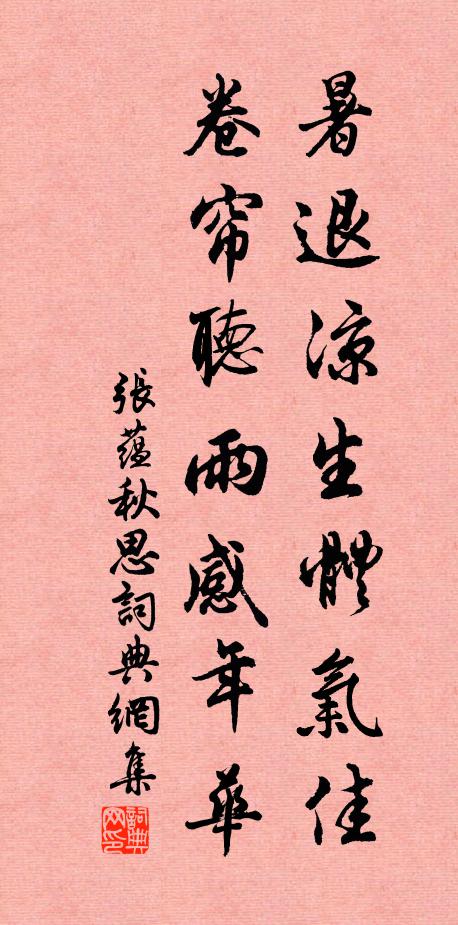 暑退涼生體氣佳
卷帘聽雨感年華
張蘊秋思詞典網集
詞典网印